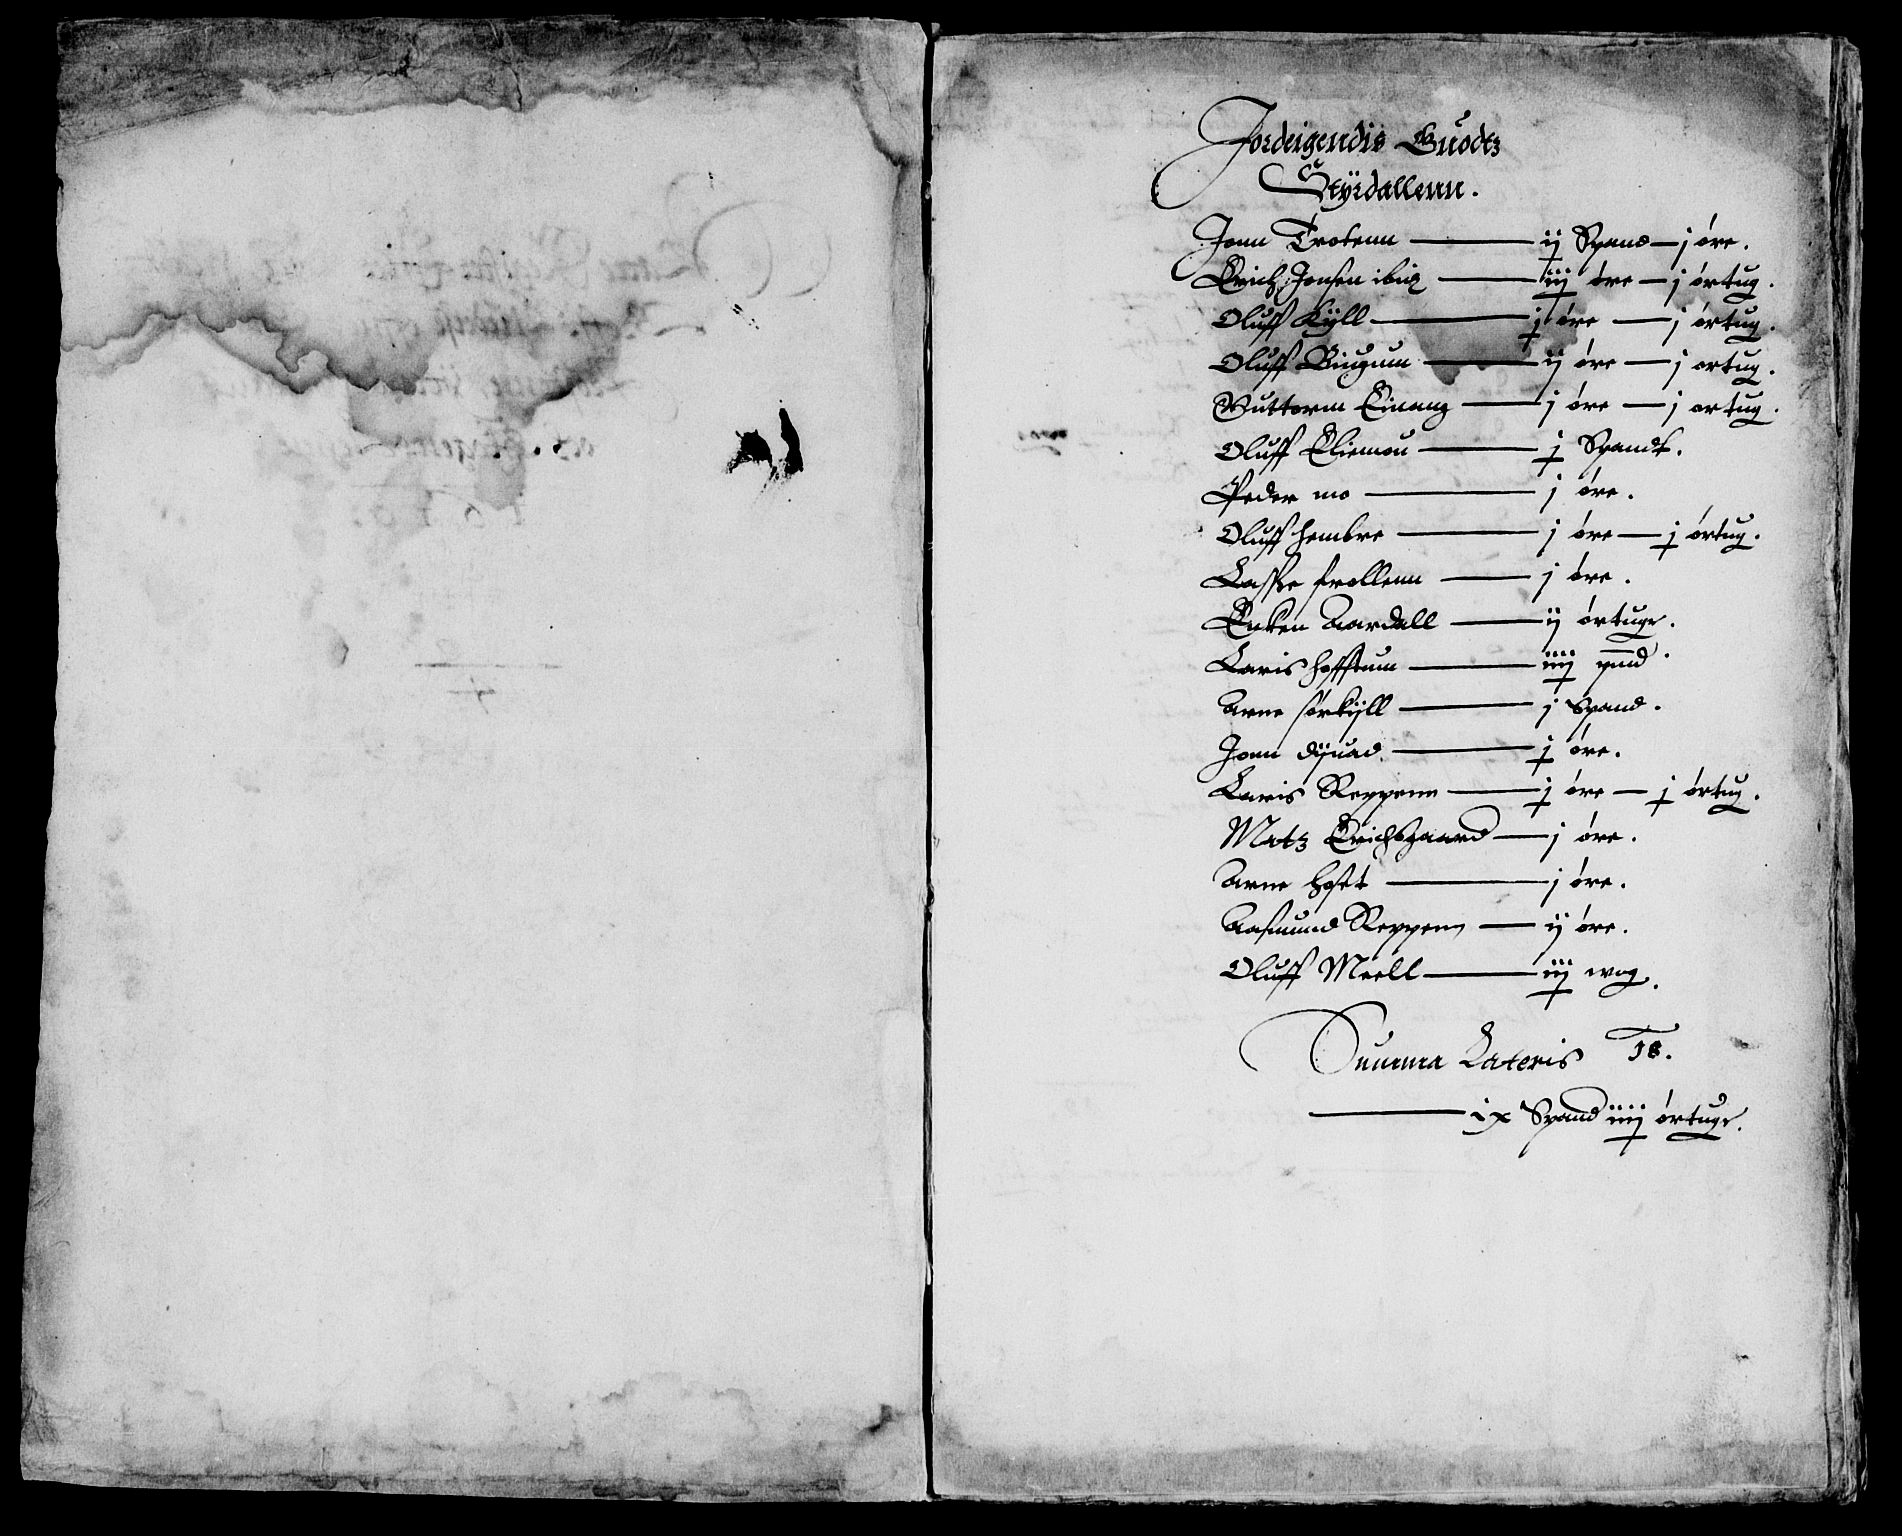 Jordeigendis Guodtz
Styrdallenn.
Jonn Trotenn — ij Spand — j øre.
Erich Jonsen ibid — iij øre — j ørtug.
Oluff Kyll — j øre — j ørtug.
Oluff Biugum — ij øre — j ørtug.
Guttorm Einang — j øre — j ørtug.
Oluff Eliemou — j Spandt.
Peder mo — j øre.
Oluff hembre — j øre — j ørtug.
Lasse frollenn — j øre.
Enken Aardall — ij ørtuge.
Laris hofftum — iiij pund.
Arne sørkyll — j Spand.
Jonn dyuad — j øre.
Laris Reppenn — j øre — j ørtug.
Matz Erichsgaard — j øre.
Arne hoset — j øre.
Aasmund Reppenn — ij øre.
Oluff Meell — iij wog.
Summa Lateris 18.
— ix Spand iiij ørtuge.